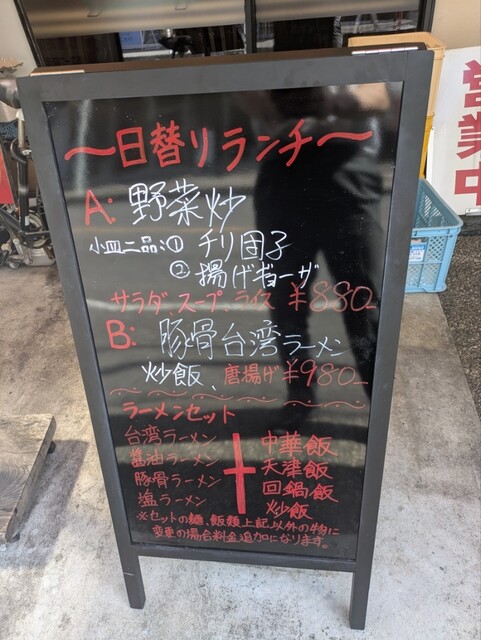 〜日替りランチ〜
A: 野菜炒
小皿二品:① チリ団子
② 揚げギョーザ
サラダ、スープ、ライス ¥880-
B: 豚骨台湾ラーメン
炒飯、唐揚げ ¥980-
ラーメンセット
台湾ラーメン
醤油ラーメン
豚骨ラーメン
塩ラーメン
+
中華飯
天津飯
回鍋飯
炒飯
※セットの麺、飯類上記以外の物に
変更の場合料金追加になります。
営業中